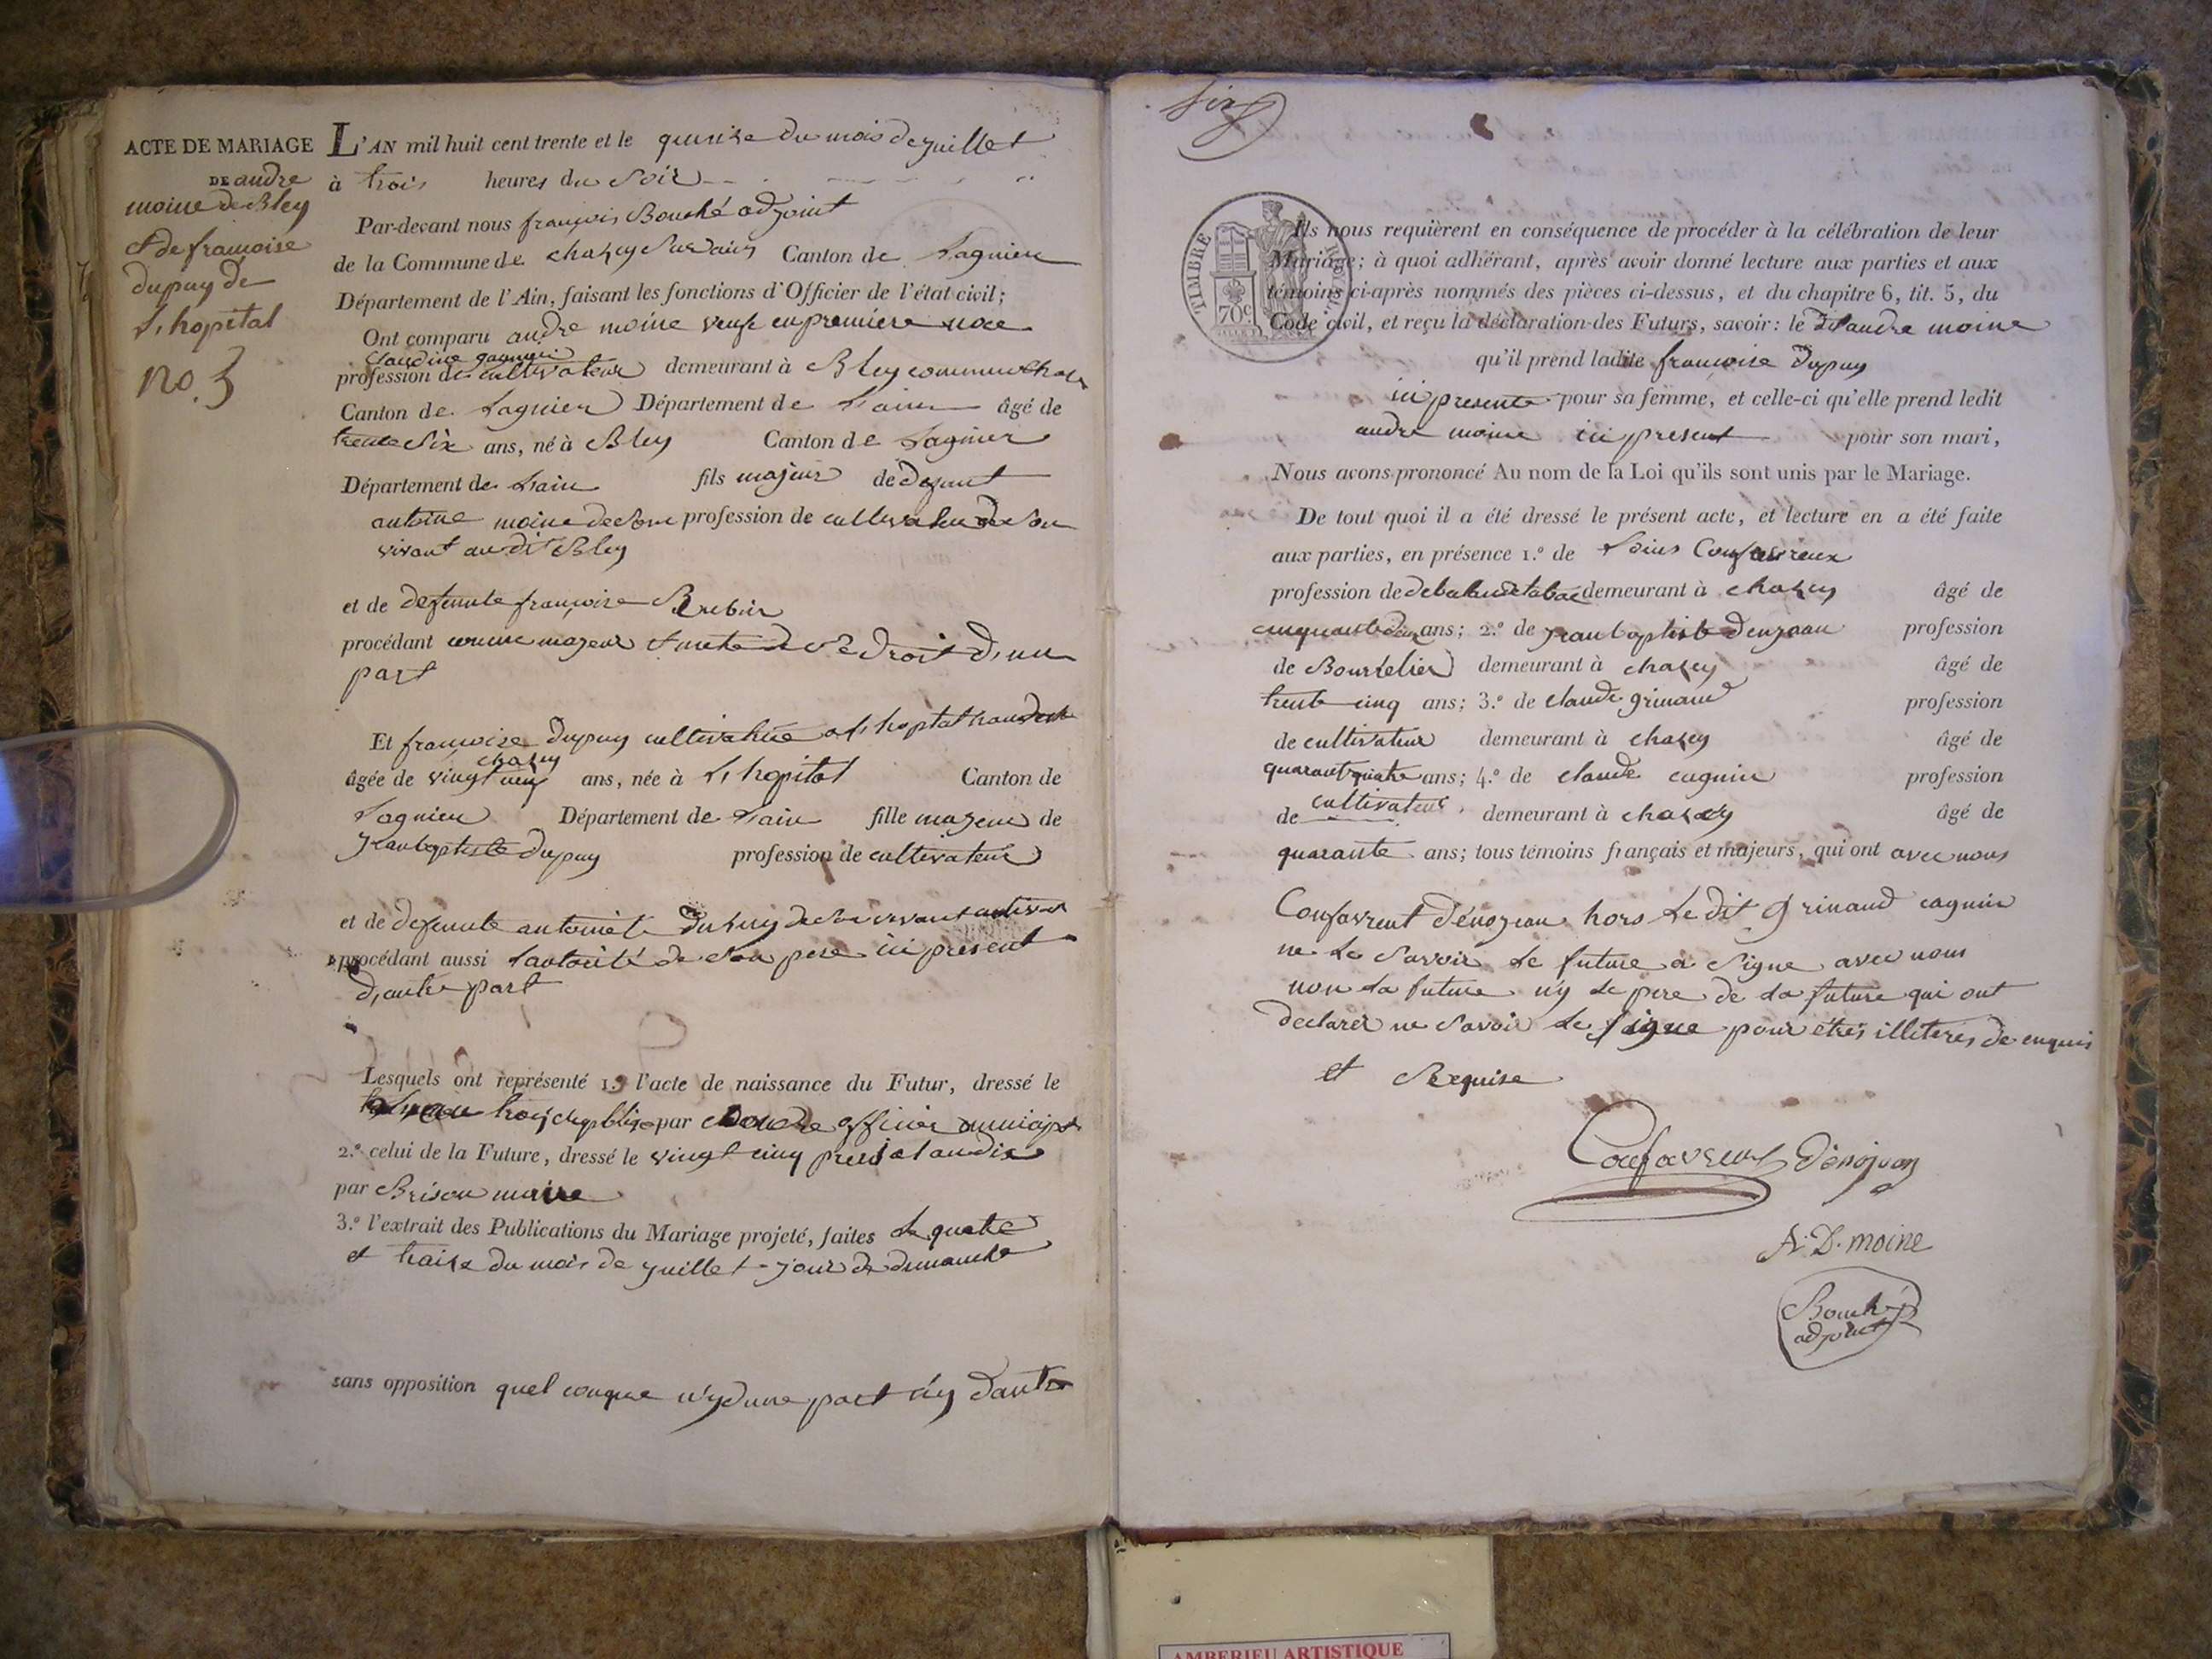 ACTE DE MARIAGE
DE andre
moine de Bley
et de francoise
dupuy de
L, hopital
no. 3
L'AN mil huit cent trente et le quinise du mois de juillet
à trois heures du Soir
Par-devant nous françois Bouché adjoint
de la Commune de chazey Sur dain Canton de Lagnieu
Département de l'Ain, faisant les fonctions d'Officier de l'état civil;
Ont comparu andre moine veufe en premiere noce
Claudine
profession de cultivateur demeurant à Bley commune chazey
Canton de Lagnieu Département de Lain âgé de
trente Six ans, né à Bley Canton de Lagnieu
Département de Lain fils majeur de defunt
antoine moine profession de cultivateur de Son
vivant au dit Bley
et de defunte françoise
procédant comme majeur droit d, une
part
Et francoise Dupuy a L, hopital
chazey
âgée de vingt neuf ans, née à L, hopital Canton de
Lagnieu Département de Lain fille majeure de
jean baptiste dupuy profession de cultivateur
et de defunte antoinete de Son vivant
procédant aussi Lautorité de Son pere ici present
d, autre part
Lesquels ont représenté 1.º l'acte de naissance du Futur, dressé le
par officier
2.º celui de la Future, dressé le vingt cinq an dix
par Brison maire
3.º l'extrait des Publications du Mariage projeté, faites Le quatre
et traise du mois de juillet jour de dimanche
sans opposition quel conque n'y dune part n'y dautre
Six
TIMBRE ROYAL
70c
Ils nous requièrent en conséquence de procéder à la célébration de leur
Mariage; à quoi adhérant, après avoir donné lecture aux parties et aux
témoins ci-après nommés des pièces ci-dessus, et du chapitre 6, tit. 5, du
Code civil, et reçu la déclaration des Futurs, savoir: le dit andre moine
qu'il prend ladite françoise Dupuy
ici presente pour sa femme, et celle-ci qu'elle prend ledit
andre moine ici present pour son mari,
Nous avons prononcé Au nom de la Loi qu'ils sont unis par le Mariage.
De tout quoi il a été dressé le présent acte, et lecture en a été faite
aux parties, en présence 1.º de Loius
profession de demeurant à chazey âgé de
cinquante deux ans; 2.º de jean baptiste profession
de Bourelier demeurant à chazey âgé de
trente cinq ans; 3.º de claude grinand profession
de cultivateur demeurant à chazey âgé de
quarant quatre ans; 4.º de claude cagnin profession
de cultivateur demeurant à chazey âgé de
quarante ans; tous témoins français et majeurs, qui ont avec nous
hors Le dit grinand cagnin
ne Le Savoir Le future a Signe avec nous
non La future n'y Le pere de La future qui ont
declarer ne Savoir Le Signe pour êtres illiteres de enquis
et Requise
Confavreux Dénojean
A. D. moine
Bouché
adjoint
AMBERIEU ARTISTIQUE